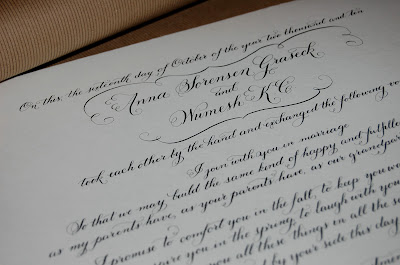 On this, the sixteenth day of October of the year two thousand and ten
Anna Sorensen Graseck
and
Numesh KC
took each other by the hand and exchanged the following vo
I join with you in marriage
So that we may build the same kind of happy and fulfille
as my parents have, as your parents have, as our grandpar
I promise to comfort you in the fall, to keep you w
you in the spring, to laugh with you
you all these things in all the s
by your side this day